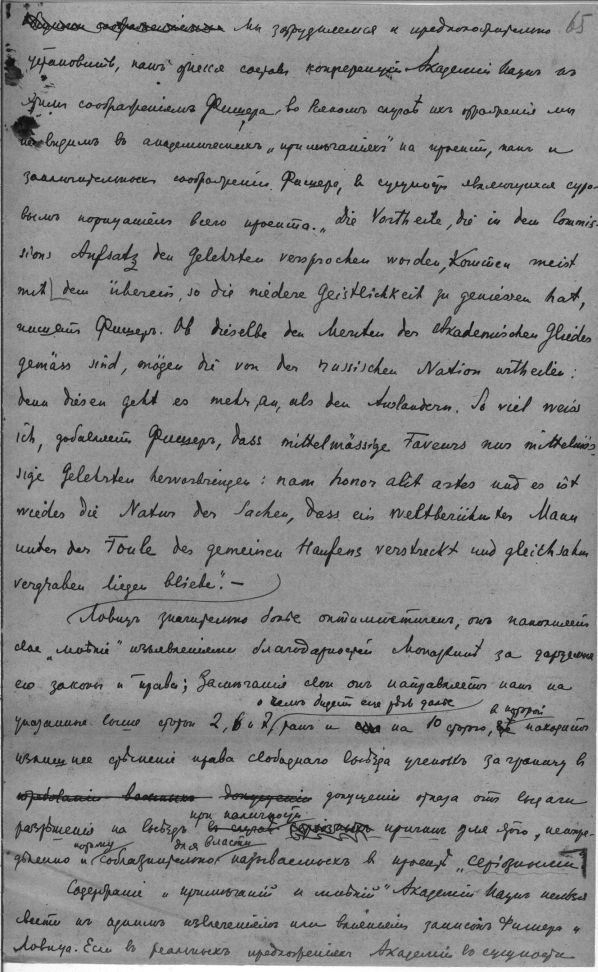 мы затрудняемся и предположительно 65
установить, какъ отнесся составъ конференціи Академіи Наукъ къ
этимъ соображеніямъ Фишера, во всякомъ случаѣ ихъ отраженія мы
не видимъ въ академическихъ „примѣчаніяхъ" на проектъ, какъ и
заключительнаго соображенія Фишера, въ сущности являющихся суро-
вымъ порицаніемъ всего проекта. „Die Vortheile, die in dem Commis-
sions Aufsatz den Gelehrten versprochen worden, kommen meist
mit dem überein, so die niedere Geistlichkeit zu geniessen hat,
пишетъ Фишеръ. Ob dieselbe den Meriten der Akademischen Glieder
gemäss sind, mögen die von der russischen Nation urtheilen:
denn diesen geht es mehr an, als den Ausländern. So viel weiss
ich, добавляетъ Фишеръ, dass mittelmässige Faveurs nur mittelmäs-
sige Gelehrten hervorbringen: nam honor alit artes und es ist
wieder die Natur der Sachen, dass ein weltberühmter Mann
unter der Foule des gemeinen Haufens verstreckt und gleichsahm
vergraben liegen bliebe". —
Ловицъ значительно болѣе оптимистиченъ, онъ наполняетъ
свое „мнѣніе" изъявленіями благодарностей Монархинѣ за даруемые
ею законы и права; Замѣчанія свои онъ направляетъ какъ на
о чемъ будетъ еще рѣчь далѣе въ которой
указанные выше строки 2, 6 и 7, такъ и на 10 строку, находитъ
излишнее стѣсненіе права свободнаго выѣзда ученыхъ заграницу въ
допущеніи отказа отъ выдачи
при наличности
разрѣшенія на выѣздъ причинъ для того, неопре-
потому для власти
дѣленно и соблазнительно называемыхъ въ проектѣ „серіозными"
Содержаніе „примѣчаній и мнѣній" Академіи Наукъ нельзя
свести къ однимъ извлеченіямъ или вліяніямъ записокъ Фишера и
Ловица. Если въ реальныхъ предположеніяхъ Академіи въ сущности